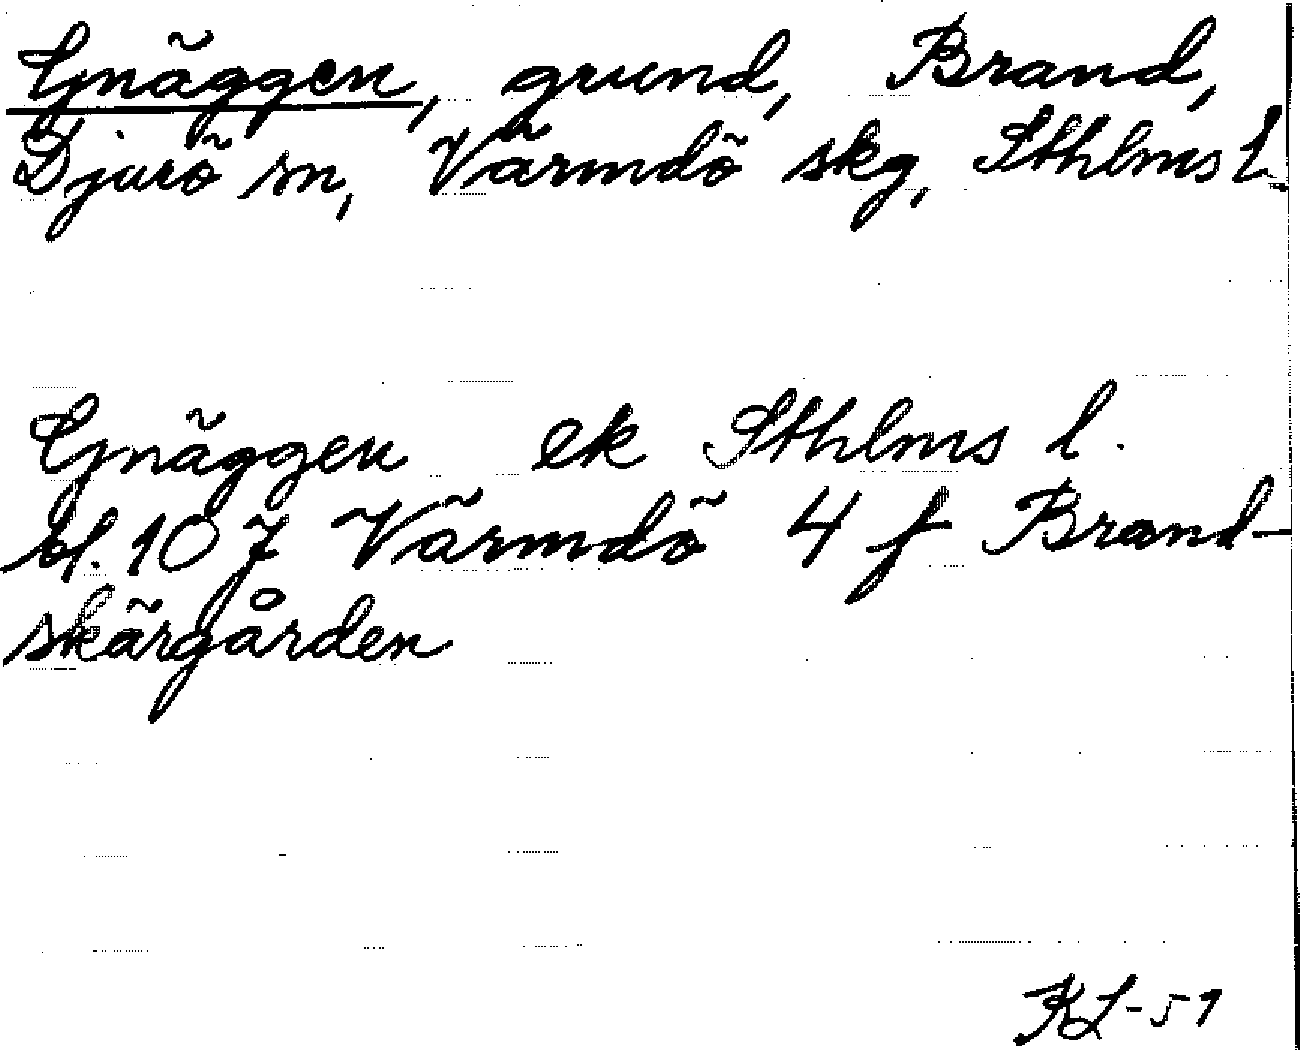 Gnäggen, grund, Brand,
Djurö sn, Värmdö skg, Sthlms l.
Gnäggen ek Sthlms l.
bl. 107 Värmdö 4 f Brand-
skärgården
KL-51